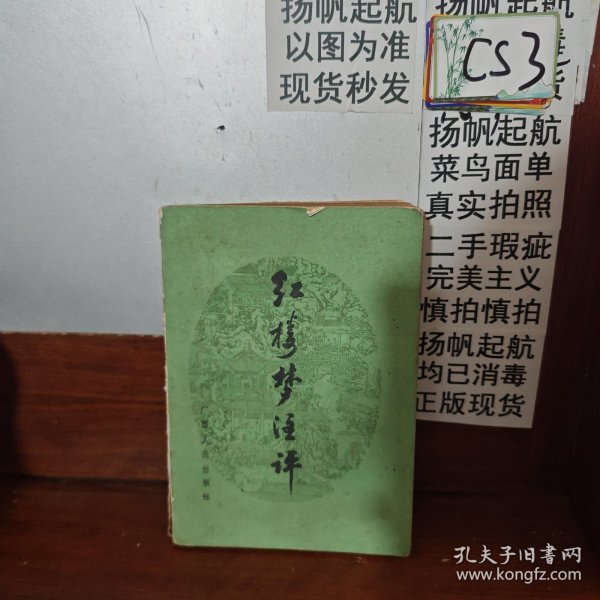 扬帆起航
以图为准
现货秒发
扬帆起航
CS3
扬帆起航
菜鸟面单
真实拍照
二手瑕疵
完美主义
慎拍慎拍
扬帆起航
均已消毒
正版现货
红楼梦注评
广西人民出版社
孔夫子旧书网
www.kongfz.com